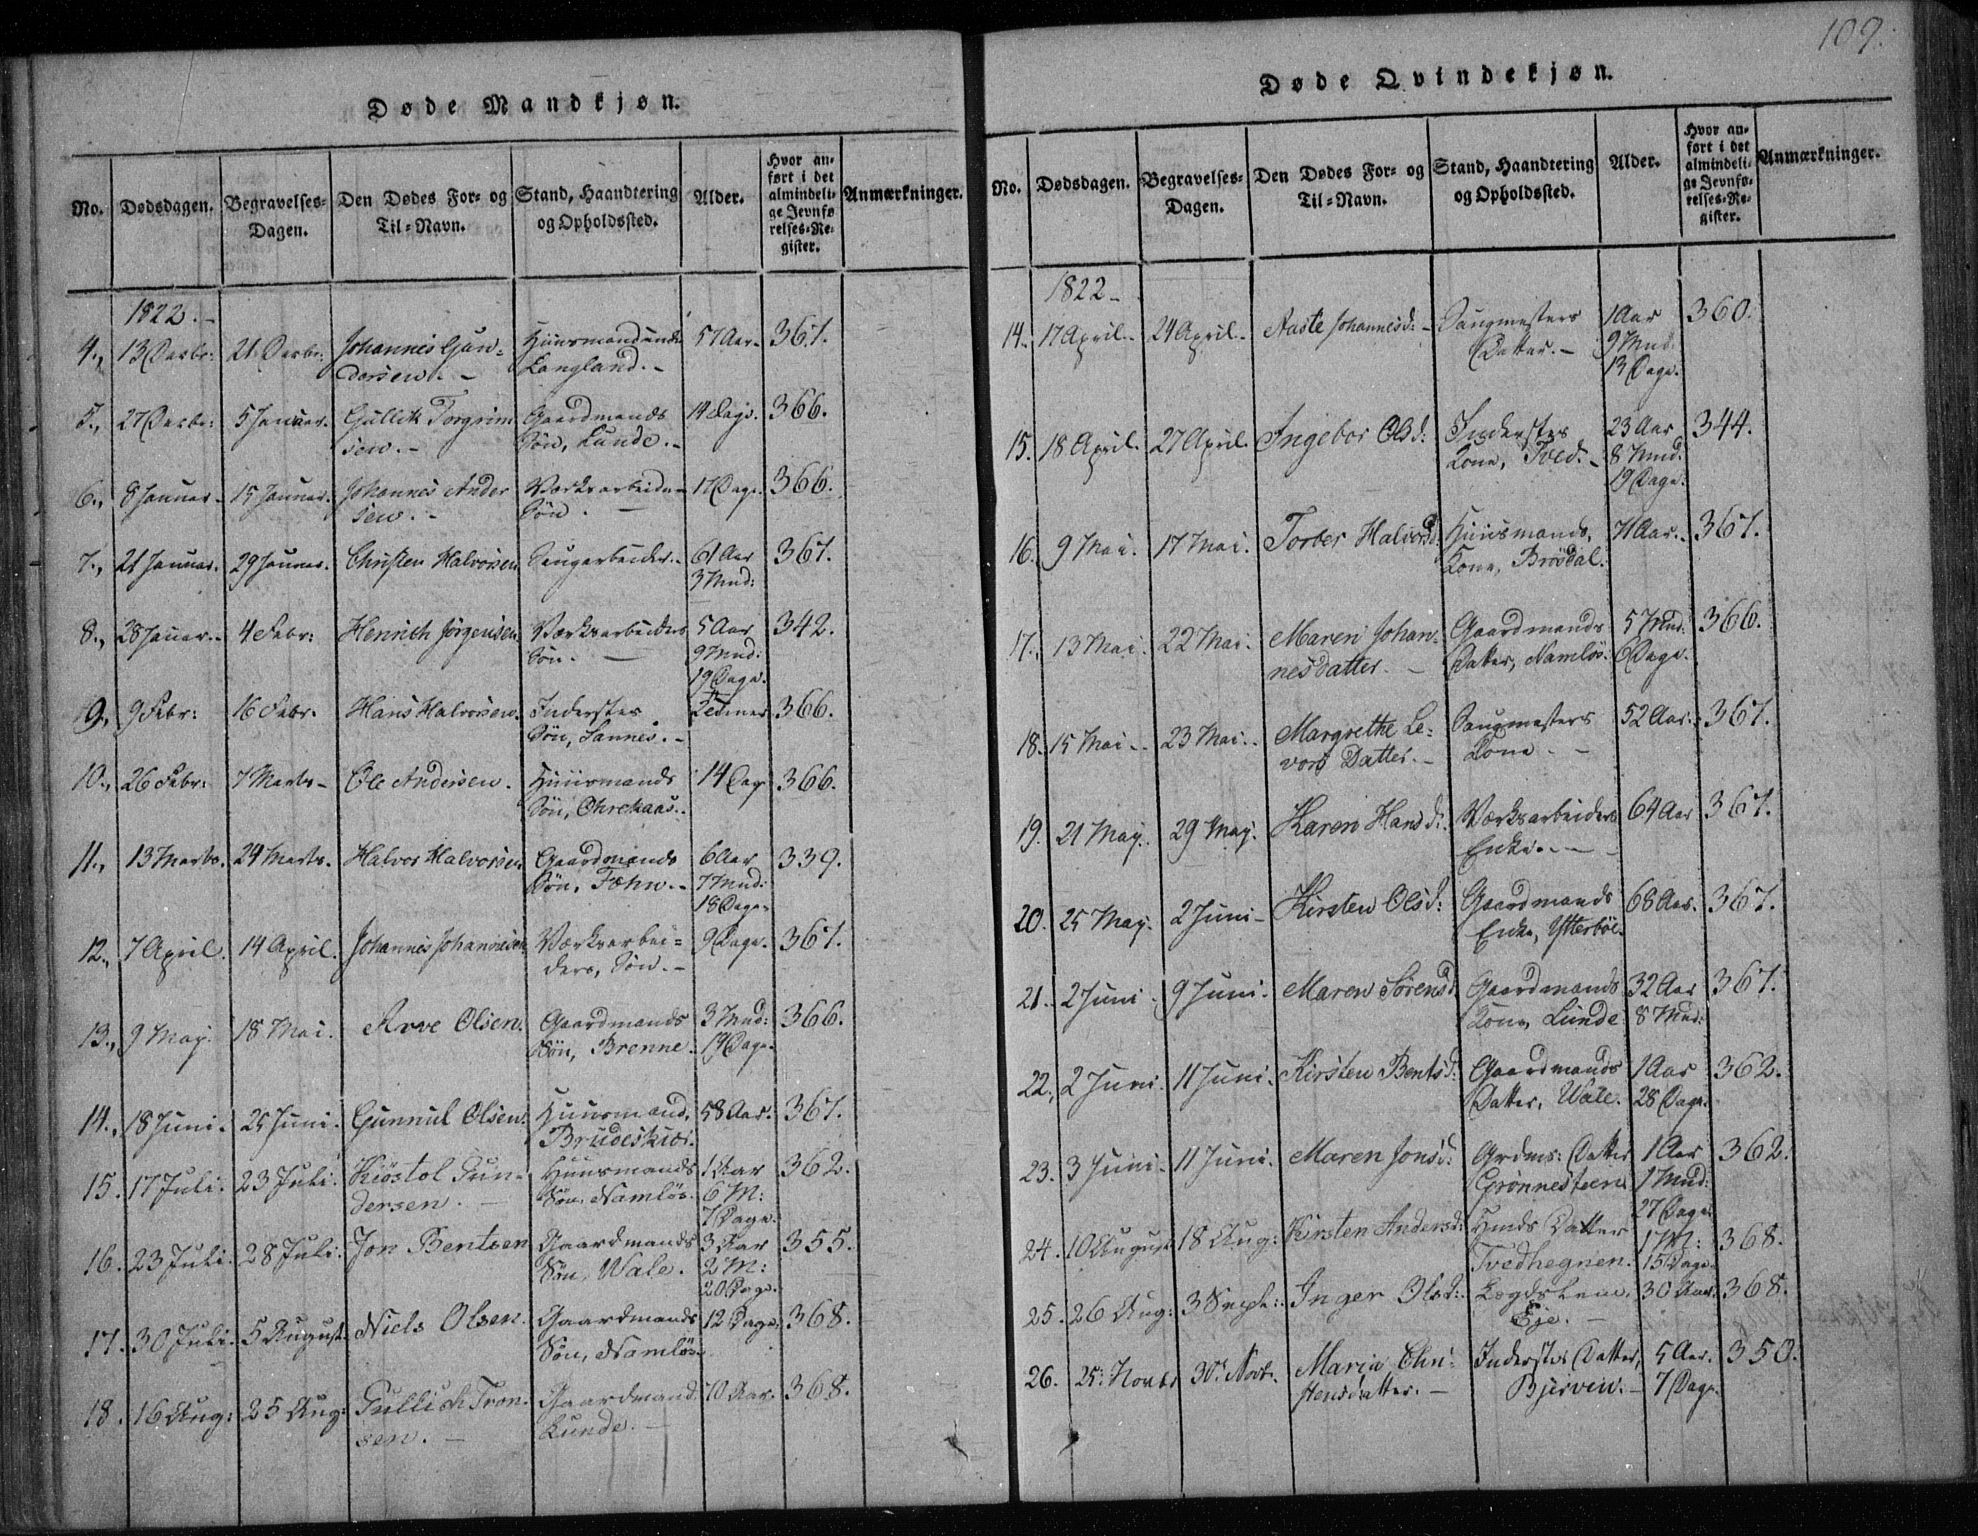 109.
Døde Mandkjøn.
No.
Dødsdagen.
Begravelses-
Dagen.
Den Dødes For- og
Til-Navn.
Stand, Haandtering
og Opholdssted.
Alder.
Hvor an-
ført i det
almindeli-
ge Jevnfø
relses-Re-
gister.
Anmærkninger.
1822.-
4., 13 Decbr: 21 Decbr: Johannes Gun= Huusmand 57 Aar- 367.
dersen.- Langland.-
5., 27 Decbr: 5 Januar. Gullik Torgrim Gaardmands 14 Dage. 366.
sen.- Søn, Lunde.-
6., 8 Januar- 15 Januar. Johannes Ander Værksarbeider 17 Dage. 366.
sen.- Søn.-
7., 21 Januar. 29 Januar. Christen Halvorsen Saugarbeider.- 61 Aar 367.
3 Mnd:
8., 28 Januar.- 4 Febr: Henrich Jørgensen Værksarbeiders 5 Aar 342.
Søn.- 9 Mnd:
19 Dage.
9., 9 Febr: 16 Febr. Hans Halvorsen. Inderstes 366.
Søn, Sannes.-
10., 26 Febr: 7 Marts- Ole Andersen. Huusmands 14 Dag 366.
Søn, Ohrekaas.
11., 13 Marts. 24 Marts. Halvor Halvorsen Gaardmands 6 Aar 339.
Søn, Fæhn.- 7 Mnd:
18 Dage.
12., 7 April. 14 April. Johannes Johannesen Værksarbei= 9 Dage. 367.
ders, Søn.-
13., 9 May. 18 Mai. Arve Olsen. Gaardmands 3 Mnd: 366.
Søn, Brenne. 19 Dage.
14., 18 Juni. 25 Juni. Gunnul Olsen. Huusmand, 58 Aar. 367.
Brudeskiøs.
15. 17 Juli. 23 Juli. Kiøstol Gun- Huusmands 1 Aar 362.
dersen.- Søn, Namløs. 6 M:
7 Dage.
16. 23 Juli. 28 Juli. Jon Bentsen Gaardmands 3 Aar 355.
Søn, Wale. 2 M:
20 Dage.
17. 30 Juli. 5 August. Niels Olsen. Gaardmands 12 Dage. 368.
Søn, Namløs.
18. 16 Aug: 25 Aug: Gullich Tron- Gaardmand 70 Aar. 368.
sen.- Lunde.-
Døde Qvindekjøn.
No.
Dødsdagen.
Begravelses-
Dagen.
Den Dødes For- og
Til-Navn.
Stand, Haandtering
og Opholdssted.
Alder.
Hvor an-
ført i det
almindeli-
ge Jevnfø-
relses-Re-
gister.
Anmærkninger.
1822-
14. 17 April. 24 April. Aaste Johannesd:- Saugmesters 1 Aar 360.
Datter.- 9 Mnd.
13 Dage.
15. 18 April. 27 April Ingebor Olsd: Inderstes 23 Aar 344.
Kone, Tved.- 8 Mnd.
19 Dage.
16. 9 Mai. 17 Mai. Torber Halvorsd: Huusmands, 71 Aar. 367.
Kone, Brødal.
17., 13 Mai. 22 Mai. Maren Johan- Gaardmands 5 Mnd. 366.
nesdatter.- Datter, Namløs. 6 Dage.
18. 15 Mai- 23 Mai. Margrethe Le= Saugmesters 52 Aar. 367.
vors Datter.- Kone.-
19. 21 May. 29 May. Karen Hansd:. Værksarbeiders 64 Aar 367.
Enke.-
20. 25 May. 2 Juni- Kirsten Olsd: Gaardmands 68 Aar. 367.
Enke, Ytterbøe.
21. 2 Juni. 9 Juni. Maren Sørensd. Gaardmands 32 Aar 367.
Kone, Lunde. 8 Mnd:
22. 2 Juni. 11 Juni. Kirsten Bentsd: Gaardmands 1 Aar 362.
Datter, Wale. 28 Dage.
23. 3 Juni. 11 Juni. Maren Jonsd: Grdms: Datter 1 Aar 362.
Grønnesteen 1 Mnd:
27 Dage.
24. 10 August 18 Aug: Kirsten Andersd: Hmds Datter 1 M: 368.
Tvedhegnen. 15 Dage.
25. 26 Aug: 3 Septe: Inger Olsd: Lægdslem, 30 Aar. 368.
Eje.-
26. 25: Novbr 30: Novb. Maria Chri- Inderstes Datter, 5 Aar. 350.
stensdatter.- Bjerven.- 7 Dage.